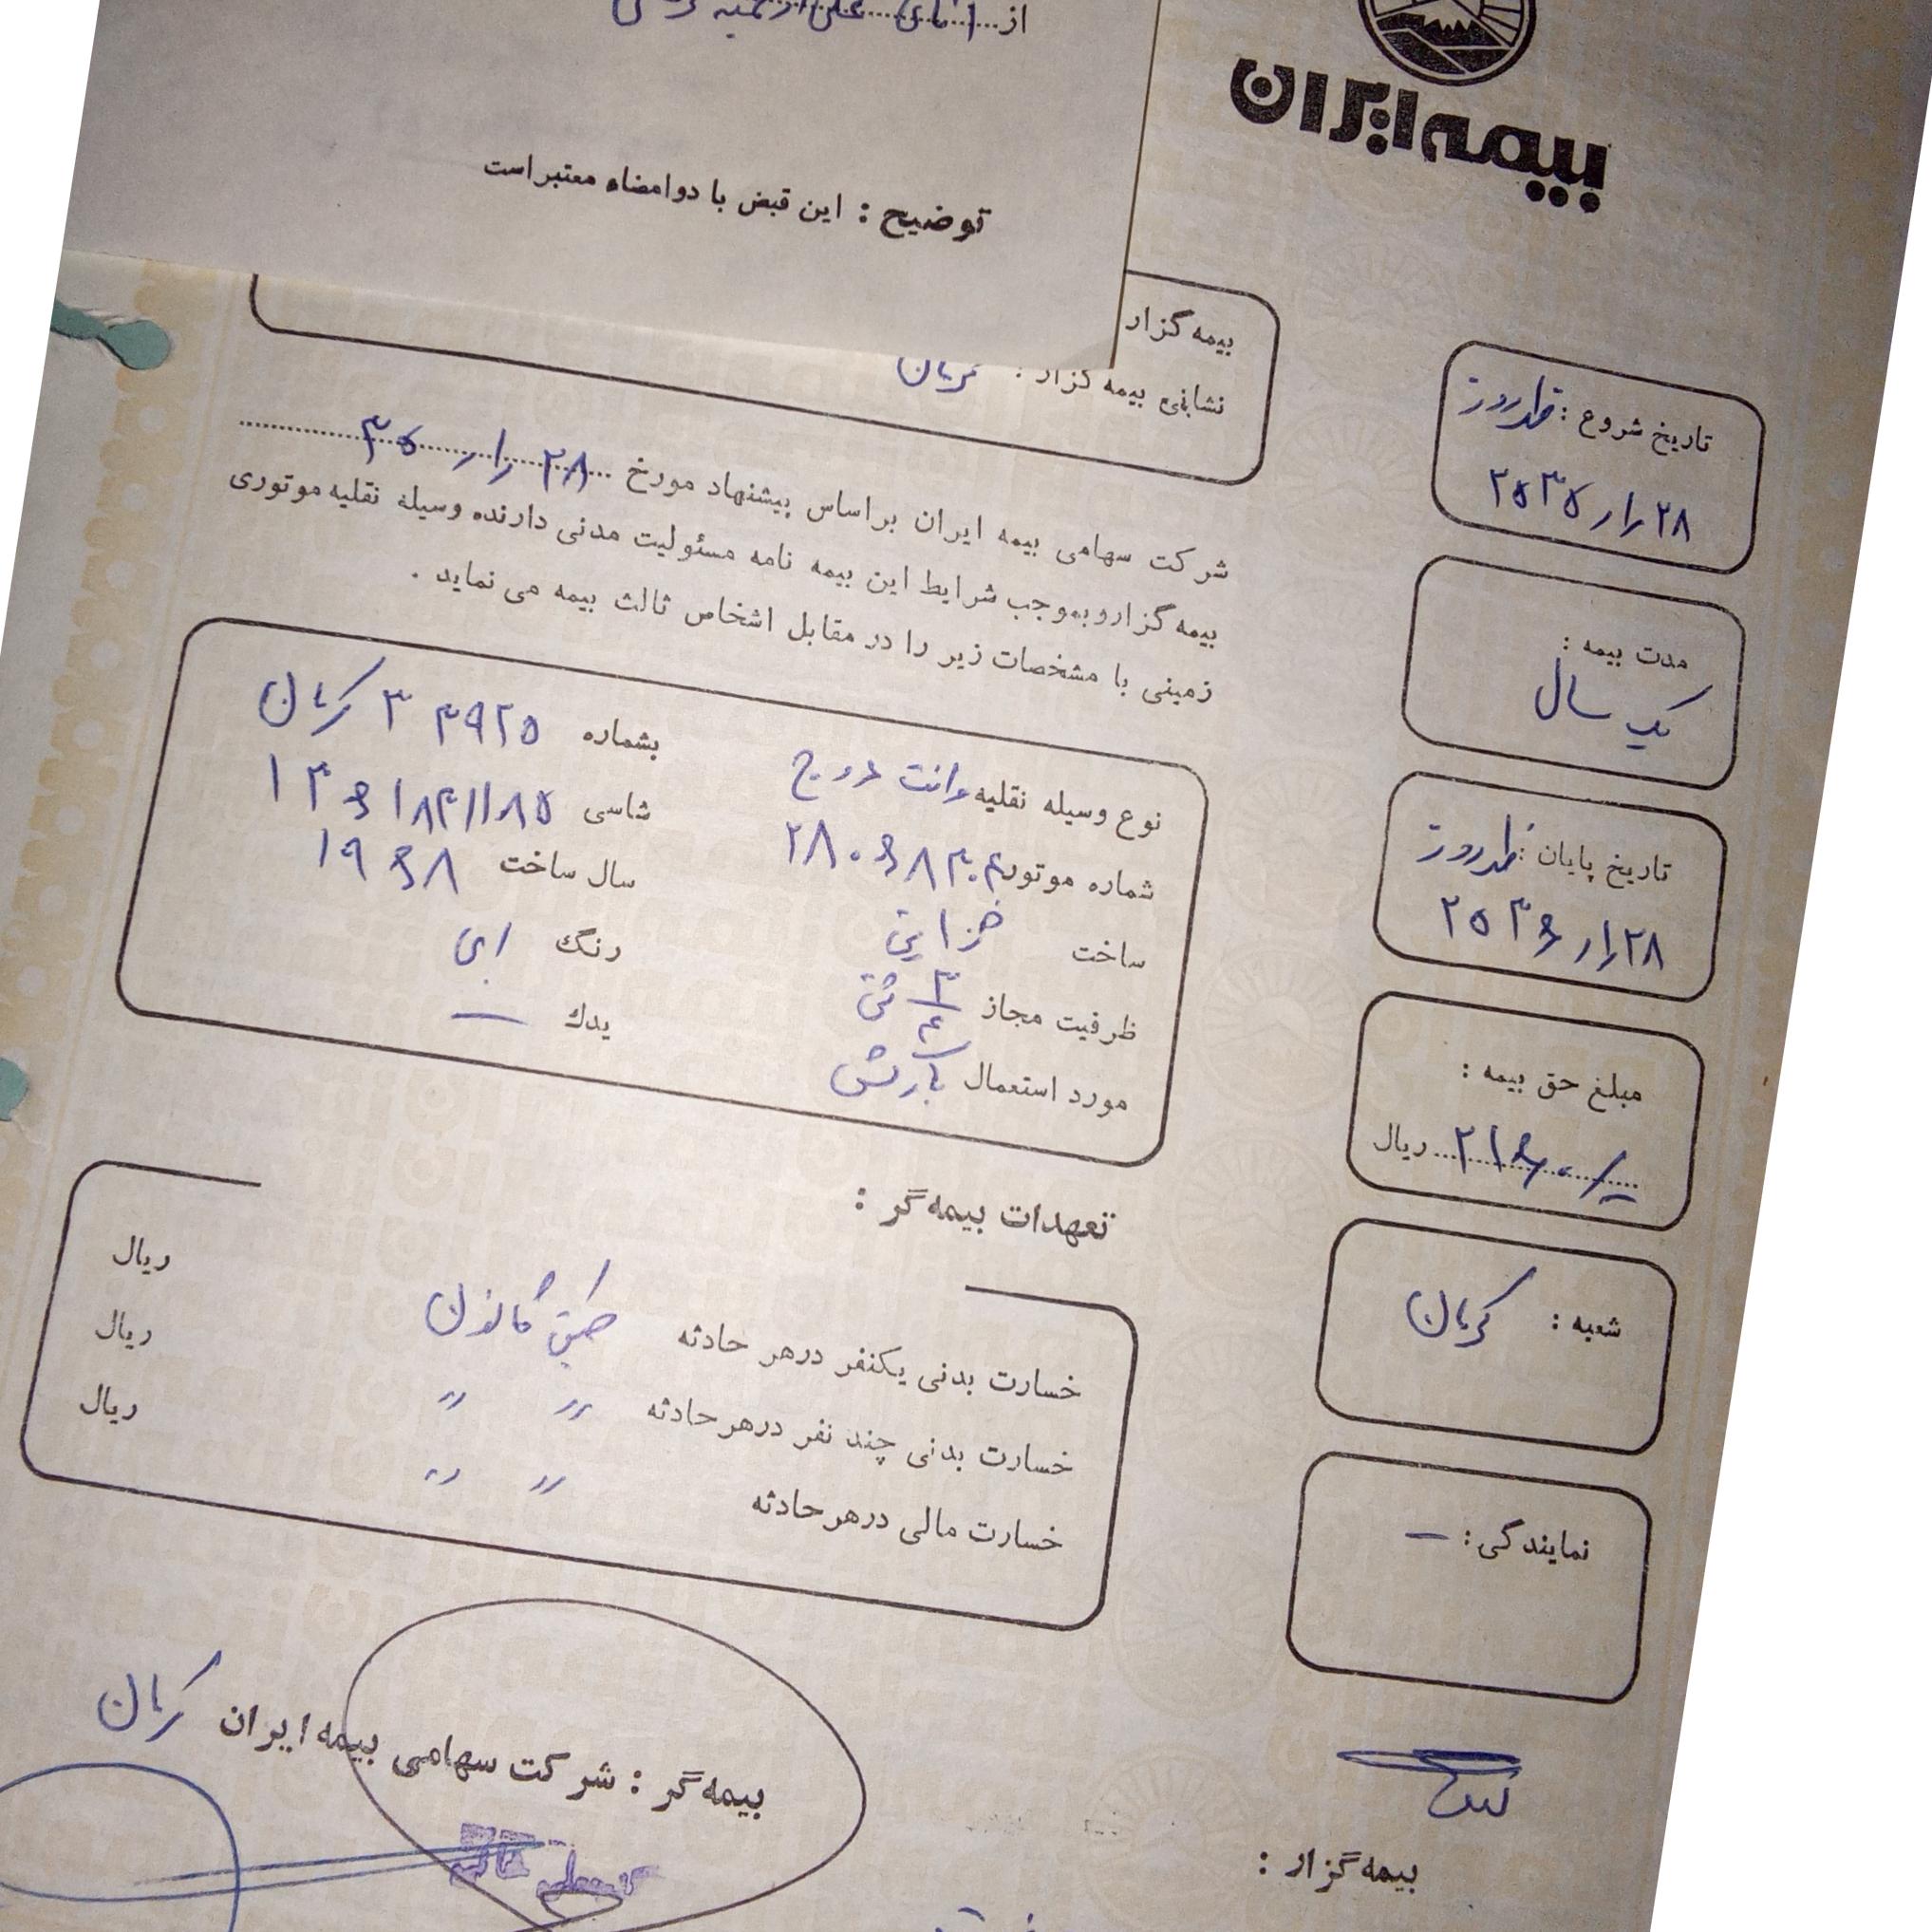 از ... آقای
توضیح : این قبض با دو امضاء معتبر است
بیمه ایران
بیمه گزار
نشانی بیمه گزار : کرمان
تاریخ شروع : ظهر روز
۲۸ ر۱ر ۲۵۳۵
مدت بیمه :
یک سال
تاریخ پایان : ظهر روز
۲۸ ر۱ر ۲۵۳۶
مبلغ حق بیمه :
۲۱۶۰/- ریال
شعبه : کرمان
نمایندگی : —
شرکت سهامی بیمه ایران براساس پیشنهاد مورخ ۲۸ ر۱ر ۳۵
بیمه گزار و بموجب شرایط این بیمه نامه مسئولیت مدنی دارنده وسیله نقلیه موتوری
زمینی با مشخصات زیر را در مقابل اشخاص ثالث بیمه می نماید .
نوع وسیله نقلیه وانت دوج بشماره ۳۴۹۲۵ ۳ کرمان
شماره موتور شاسی ۱۳۶۱۸۴۱۱۸۵
ساخت سال ساخت ۱۹۶۸
ظرفیت مجاز ۳/۴ تن رنگ آبی
مورد استعمال بارکش یدک —
تعهدات بیمه گر :
خسارت بدنی یکنفر در هر حادثه طبق قانون ریال
خسارت بدنی چند نفر در هر حادثه " " ریال
خسارت مالی در هر حادثه " " ریال
بیمه گر : شرکت سهامی بیمه ایران کرمان
بیمه گزار :